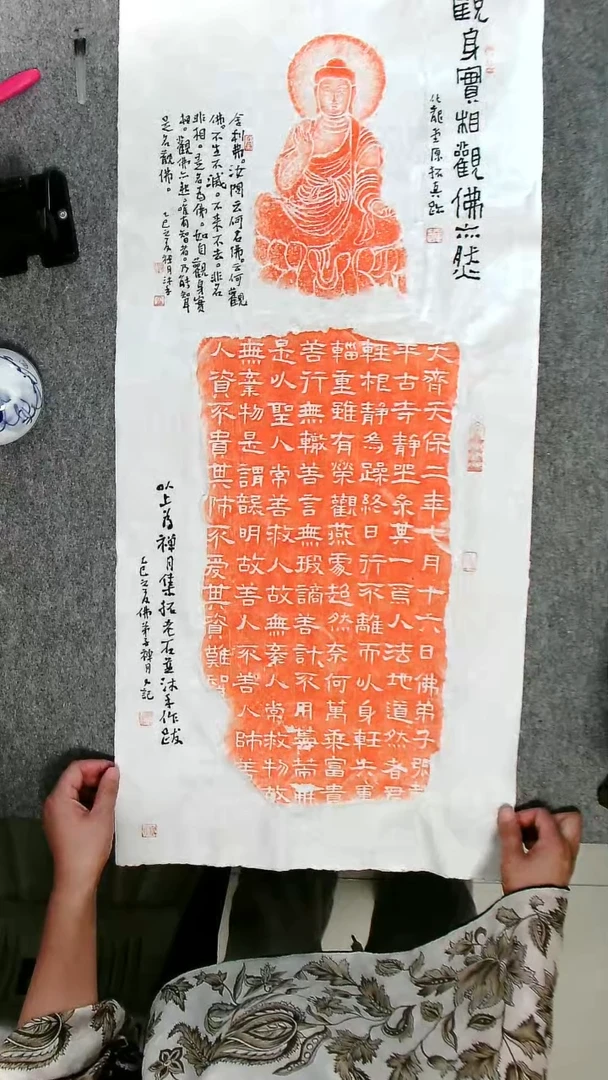 觀身實相觀佛亦然
化龍堂原拓真跡
舍利弗。汝問云何名佛。云何觀
佛。不生不滅。不來不去。非名
非相。是名為佛。如自觀身實
相。觀佛亦然。唯有智者。乃能知耳
是名觀佛。
乙巳之夏禪月沐手
大齊天保二年七月十六日佛弟子
平古寺靜坐其一焉人法地道然者君
輕根靜為躁終日行不離而以身輕失重
輜重雖有榮觀燕處超然奈何萬乘富貴
善行無轍善言無瑕謫善計不用籌策無
是以聖人常善救人故無棄人常救物故
無棄物是謂襲明故善人不善人師善
人資不貴其師不愛其資難智
以上為禪月集拓老石並沐手作跋
乙巳之夏佛弟子禪月又記